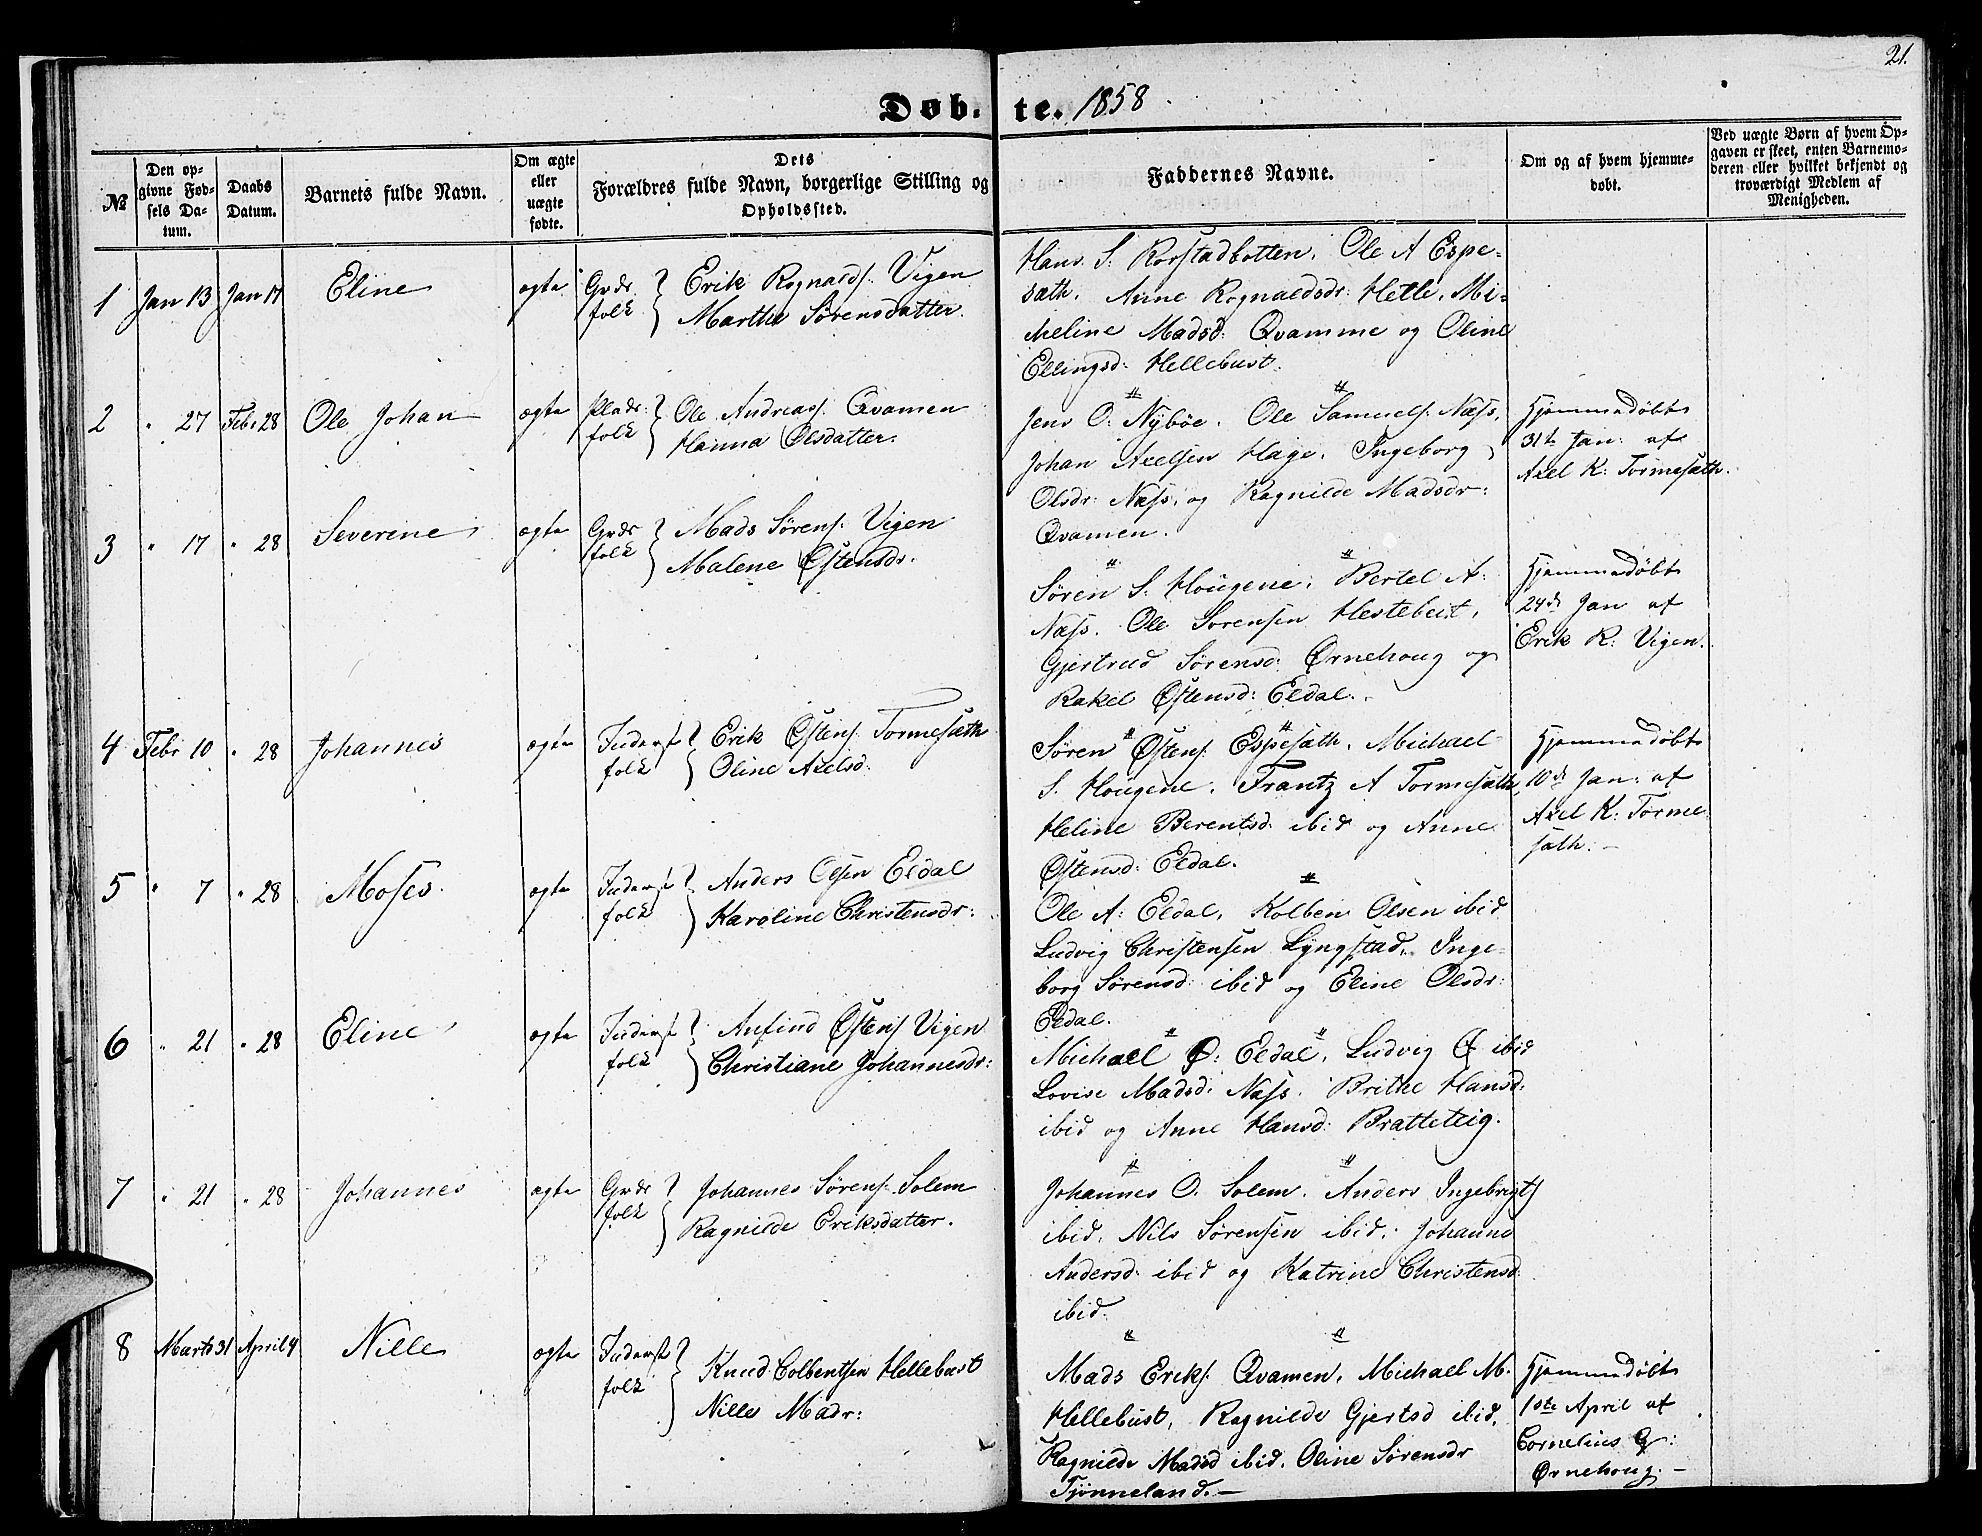 21.
Døb. te. 1858
№
Den op-
givne Fød-
sels Da-
tum.
Daabs
Datum.
Barnets fulde Navn.
Om ægte
eller
uægte
fødte.
Dets
Forældres fulde Navn, borgerlige Stilling og
Opholdssted.
Faddernes Navne.
Om og af hvem hjemme-
døbt.
Ved uægte Børn af hvem Op-
gaven er skeet, enten Barnemo-
deren eller hvilket bekjendt og
troværdigt Medlem af
Menigheden.
1 Jan 13 Jan 17 Eline ægte Grdr folk Erik Rognalds. Vigen
Marthe Sørensdatter.
Hans S. Rorstadbotten. Ole A Espe-
sæth. Anne Rognaldsdr: Helle. Mi-
cheline Madsd: Qvamme og Oline
Ellingsd: Hellebust.
2 " 27 Febr 28 Ole Johan ægte Plads: folk Ole Andreass. Qvamen
Hanna Olsdatter.
Jens O: Nybøe. Ole Samuels. Næss.
Johan Axelsen Hage. Ingeborg
Olsdr: Næss. og Ragnilde Madsdr:
Qvamen.
Hjemmedøbt
31te Jan: af
Axel K: Tormesæth.
3 " 17 " 28 Severine ægte Grdr folk Mads Sørens. Vigen
Malene Østensdr.
Søren S. Hougene. Bertel A:
Næss. Ole Sørensen Hestebeit.
Gjertrud Sørensd: Ørnehoug og
Rakel Østensd: Eldal.
Hjemmedøbt
24de Jan af
Erik R: Vigen.
4 Febr 10 " 28 Johannes ægte Inderst folk Erik Østens. Tormesæth
Oline Axelsd.
Søren Østens. Espesæth. Michael
S. Hougene. Frantz A Tormesæth,
Heline Berentsd. ibid og Anne
Østensd: Eldal.
Hjemmedøbt
10de Jan: af
Axel K: Torme
sæth. –
5 " 7 " 28 Moses. ægte Inderst folk Anders Olsen Eldal
Karoline Christensdr:
Ole A: Eldal, Kolben Olsen ibid
Ludvig Christensen Lyngstad. Inge-
borg Sørensd: ibid og Eline Olsdr:
Eldal.
6 " 21 " 28 Eline ægte Inderst folk Anfind Østens Vigen
Christiane Johannesdr:
Michael Ø: Eldal, Ludvig Ø ibid
Lovise Madsd: Næss. Brithe Hansd:
ibid og Anne Hansd: Bratteteig.
7 " 21 " 28 Johannes ægte Grdr folk Johannes Sørens. Solem
Ragnilde Eriksdatter.
Johannes O. Solem. Anders Ingebrigts
ibid. Nils Sørensen ibid. Johanne
Andersd: ibid og Katrine Christensd:
ibid.
8 Marts 31 April 4 Nille ægte Inderst folk Knud Colbentsen Hellebust
Nille Madr:
Mads Eriks. Qvamen, Michael M.
Hellebust, Ragnilde Gjertsd ibid.
Ragnilde Madsd ibid. Oline Sørensdr
Tjønneland. –
Hjemmedøbt
1ste April af
Cornelius G:
Ørnehoug. –